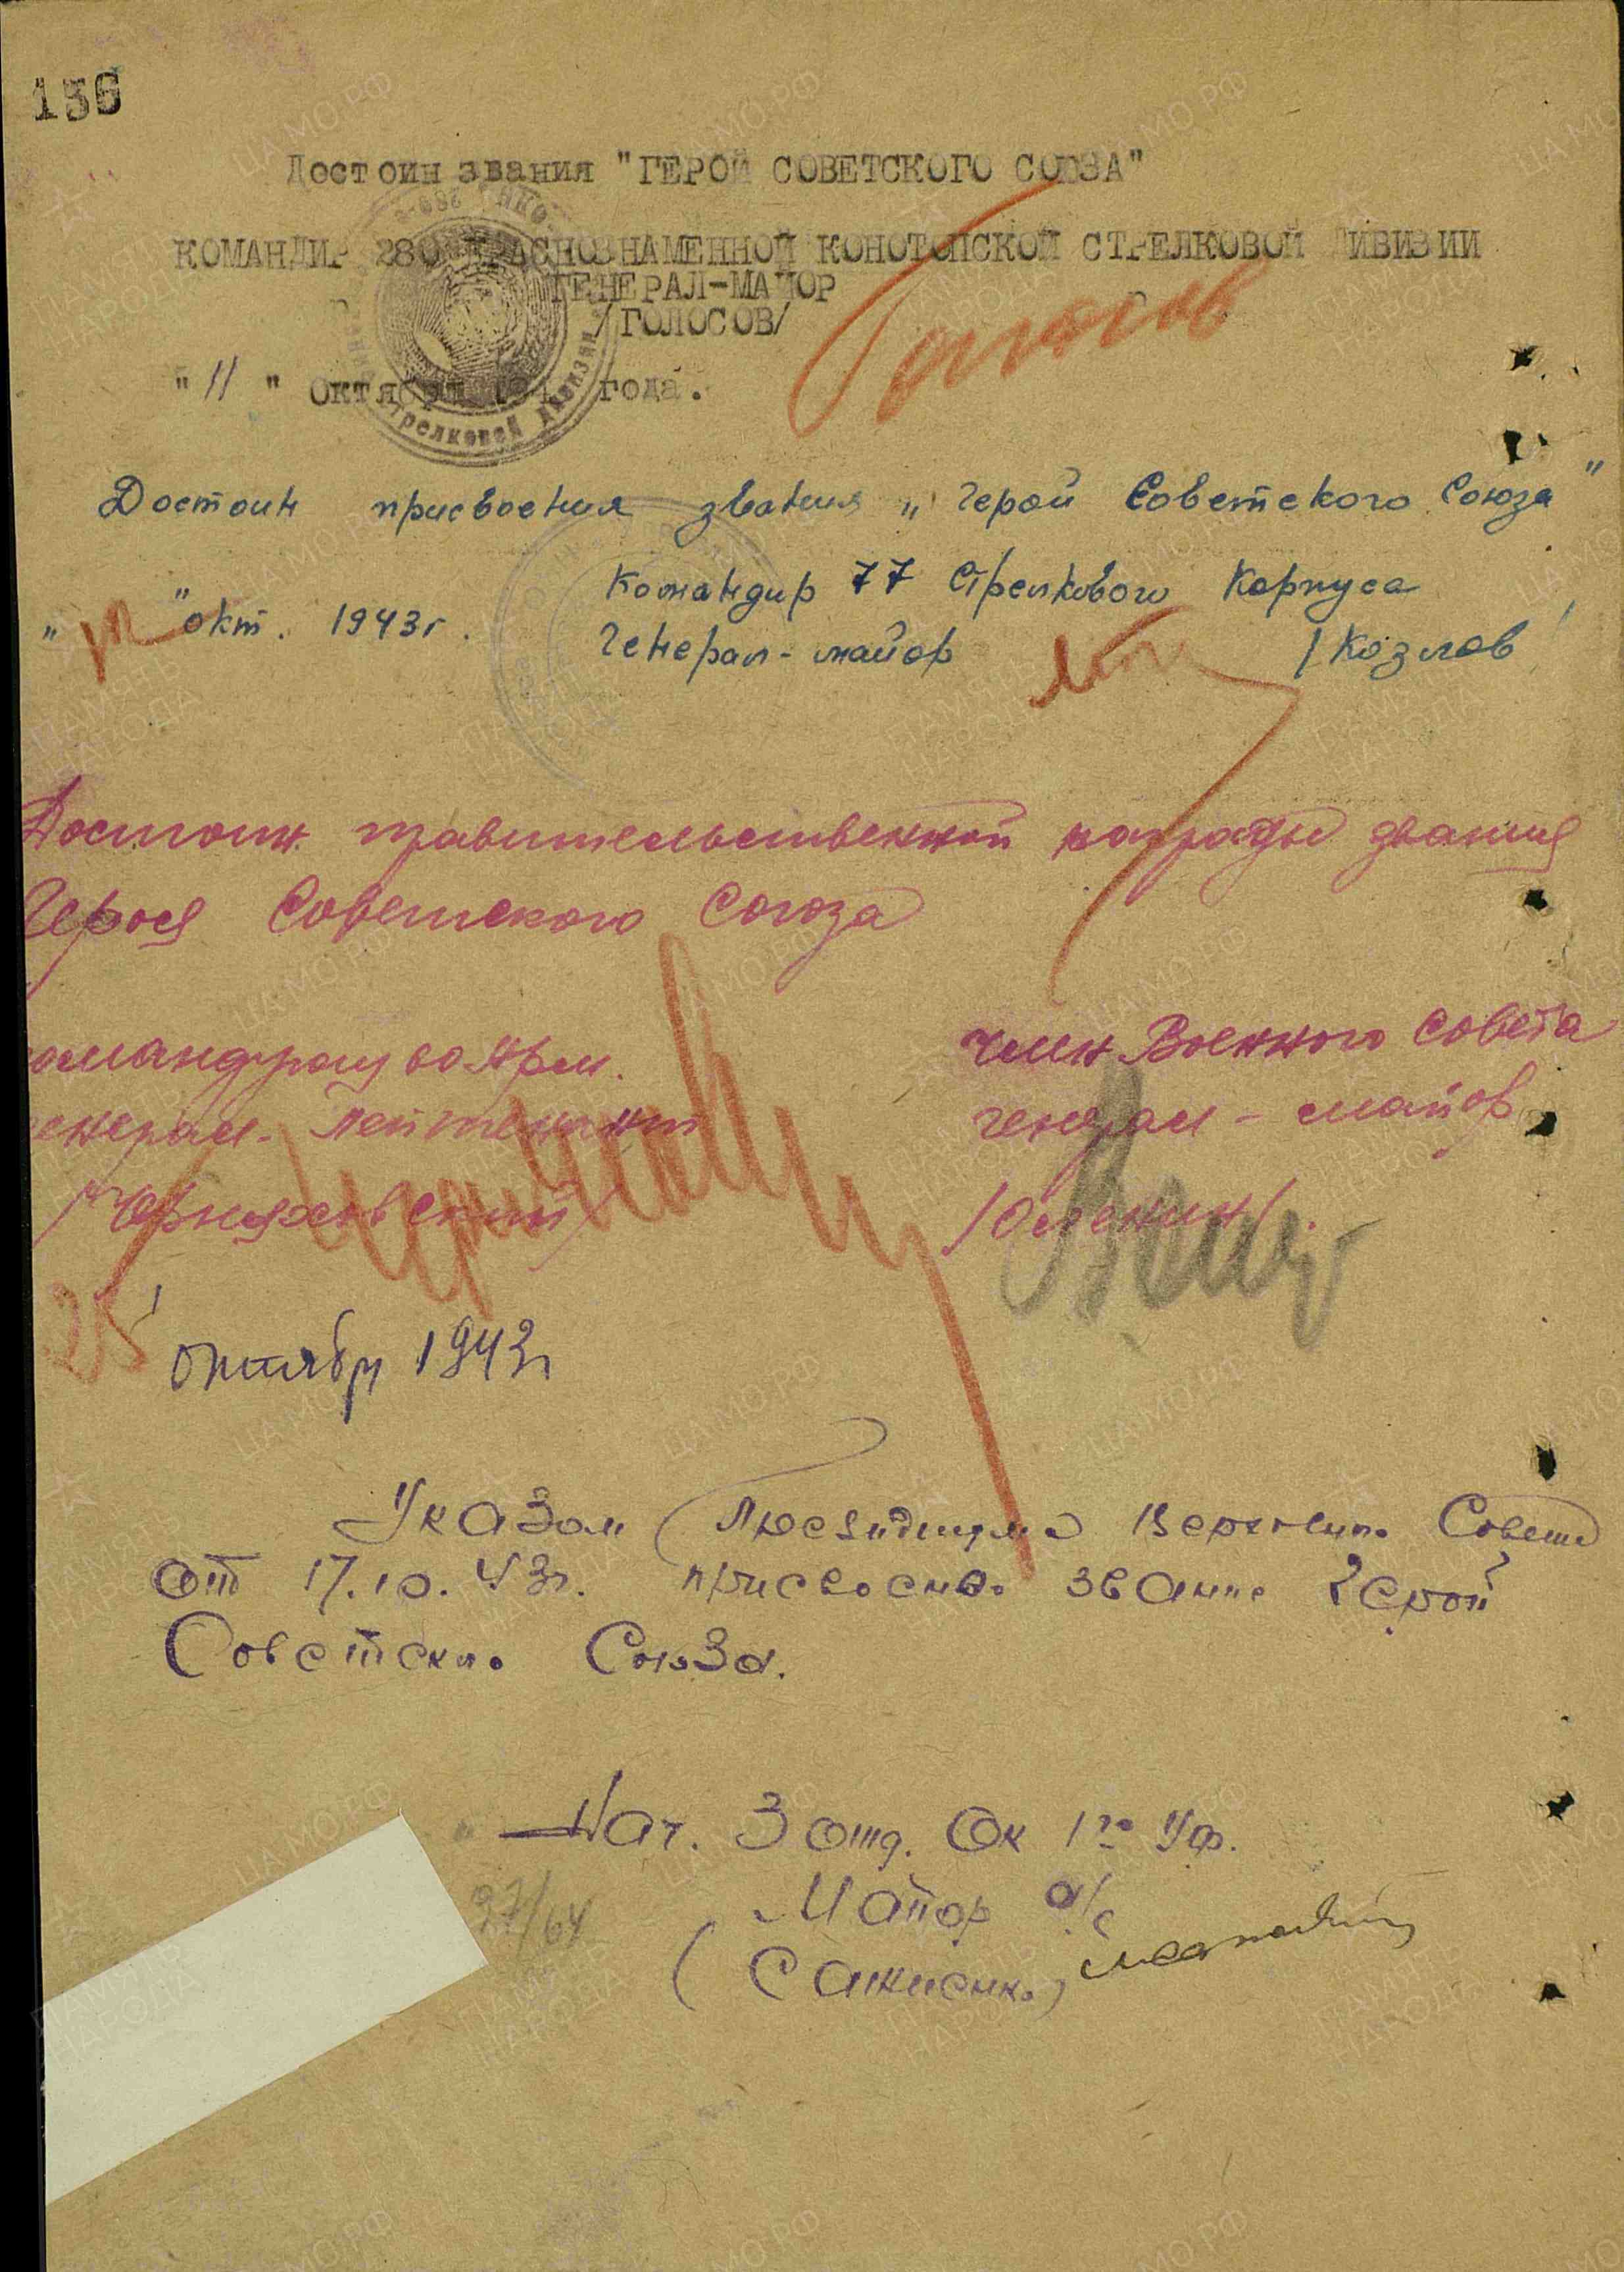 136
Достоин звания "ГЕРОЙ СОВЕТСКОГО СОЮЗА"
КОМАНДИР 280 КРАСНОЗНАМЕННОЙ КОНОТОПСКОЙ СТРЕЛКОВОЙ ДИВИЗИИ
ГЕНЕРАЛ-МАЙОР
/ГОЛОСОВ/
Голосов
"11" Октября 194 года.
стрелковой дивизии
Достоин присвоения звания „Герой Советского Союза"
Командир 77 Стрелкового Корпуса
" " окт. 1943 г.
Генерал-майор /Козлов/
Достоин правительственной награды звания
Героя Советского Союза
омандующ 60 Арм.
енерал-лейтенант
/Черняховский/
Член Военного Совета
генерал-майор
/Оленин/.
25 октября 1943г
Указом Президиума Верховного Совета
от 17.10.43г. присвоено звание Герой
Советского Союза.
Нач. 3 отд. ОК 1го Уф.
Майор а/с
27/64